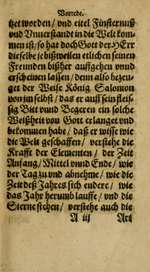 Vorrede.
tzet worden/ vnd eitel Fünsternuß
vnd Vnuerstandt in die Welt kom-
men ist/ so hat doch Gott der HErr
dieselbe biszweilen etlichen seinen
Freunden bißher auffgehen vnnd
erscheinen lassen/ denn also bezeu-
get der Weise König Salomon
von jm selbst/ das er auff sein fleis-
sig Bitt vnnd Begeren ein solche
Weißheit von Gott erlanget vnd
bekommen habe/ daß er wisse wie
die Welt geschaffen/ verstehe die
Krafft der Elementen/ der Zeit
Anfang/ Mittel vnnd Ende/ wie
der Tag zu vnd abnehme/ wie die
Zeit deß Jahrs sich endere/ wie
das Jahr herumb lauffe/ vnd die
Sterne stehen/ verstehe auch die
A iij Art